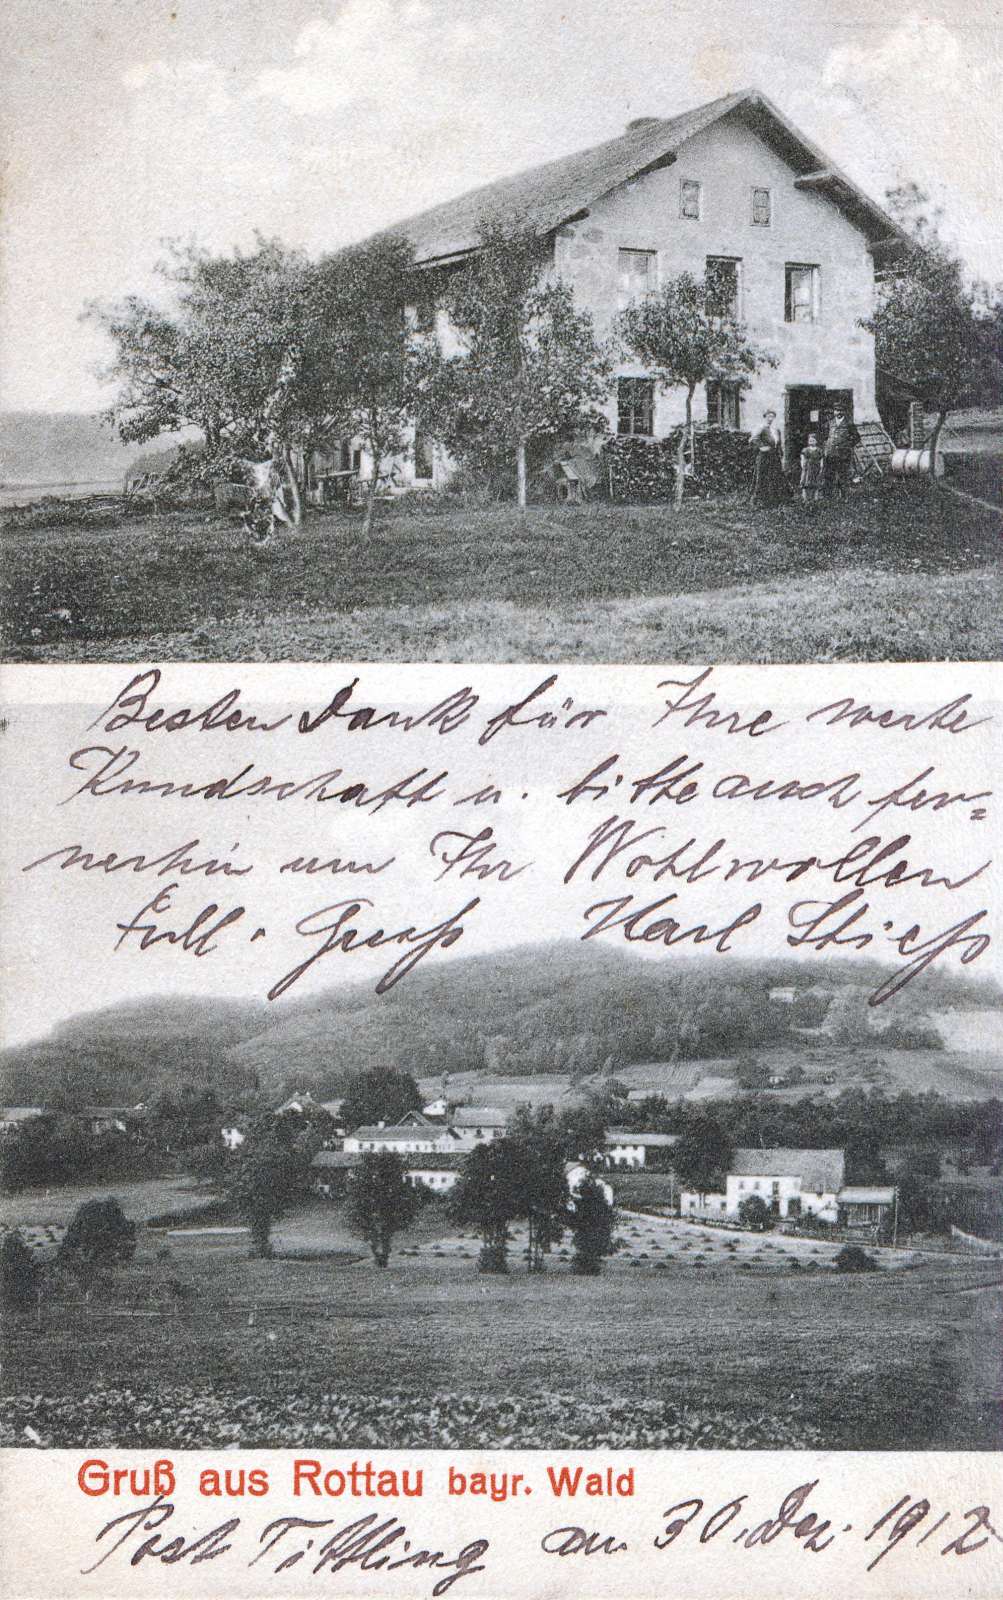 Besten Dank für Ihre werte
Kundschaft u. bitte auch fer=
nerhin um Ihr Wohlwollen
Gruß Karl Stieß
Gruß aus Rottau bayr. Wald
Post Tittling am 30. Dez. 1912